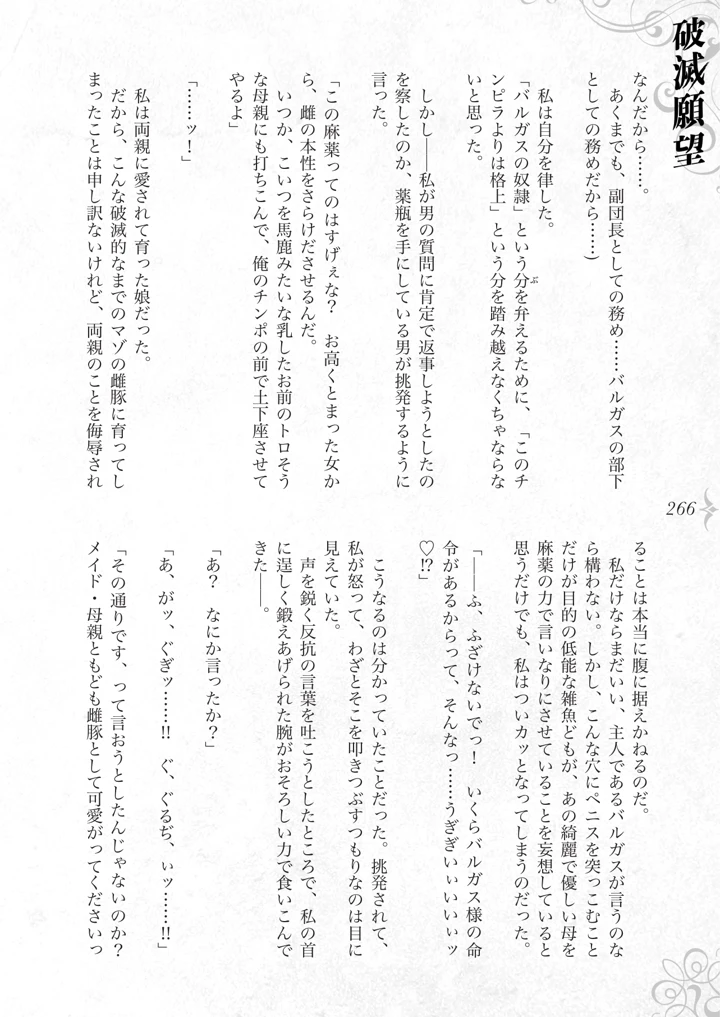 破滅願望
なんだから……。
　あくまでも、副団長としての務め……バルガスの部下
としての務めだから……)
　私は自分を律した。
「バルガスの奴隷」という分を弁えるために、「このチ
ンピラよりは格上」という分を踏み越えなくちゃならな
いと思った。
　しかし――私が男の質問に肯定で返事しようとしたの
を察したのか、薬瓶を手にしている男が挑発するように
言った。
「この麻薬ってのはすげぇな？　お高くとまった女か
ら、雌の本性をさらけださせるんだ。
　いつか、こいつを馬鹿みたいな乳したお前のトロそう
な母親にも打ちこんで、俺のチンポの前で土下座させて
やるよ」
「……ッ！」
　私は両親に愛されて育った娘だった。
　だから、こんな破滅的なまでのマゾの雌豚に育ってし
まったことは申し訳ないけれど、両親のことを侮辱され
266
ることは本当に腹に据えかねるのだ。
　私だけならまだいい、主人であるバルガスが言うのな
ら構わない。しかし、こんな穴にペニスを突っこむこと
だけが目的の低能な雑魚どもが、あの綺麗で優しい母を
麻薬の力で言いなりにさせていることを妄想していると
思うだけでも、私はついカッとなってしまうのだった。
「――ふ、ふざけないでっ！　いくらバルガス様の命
令があるからって、そんなっ……うぎぎいぃいいぃッ
♡⁉」
　こうなるのは分かっていたことだった。挑発されて、
私が怒って、わざとそこを叩きつぶすつもりなのは目に
見えていた。
　声を鋭く反抗の言葉を吐こうとしたところで、私の首
に逞しく鍛えあげられた腕がおそろしい力で食いこんで
きた――。
「あ？　なにか言ったか？」
「あ、がッ、ぐぎッ……‼　ぐ、ぐるぢ、ぃッ……‼」
「その通りです、って言おうとしたんじゃないのか？
メイド・母親ともども雌豚として可愛がってくださいっ